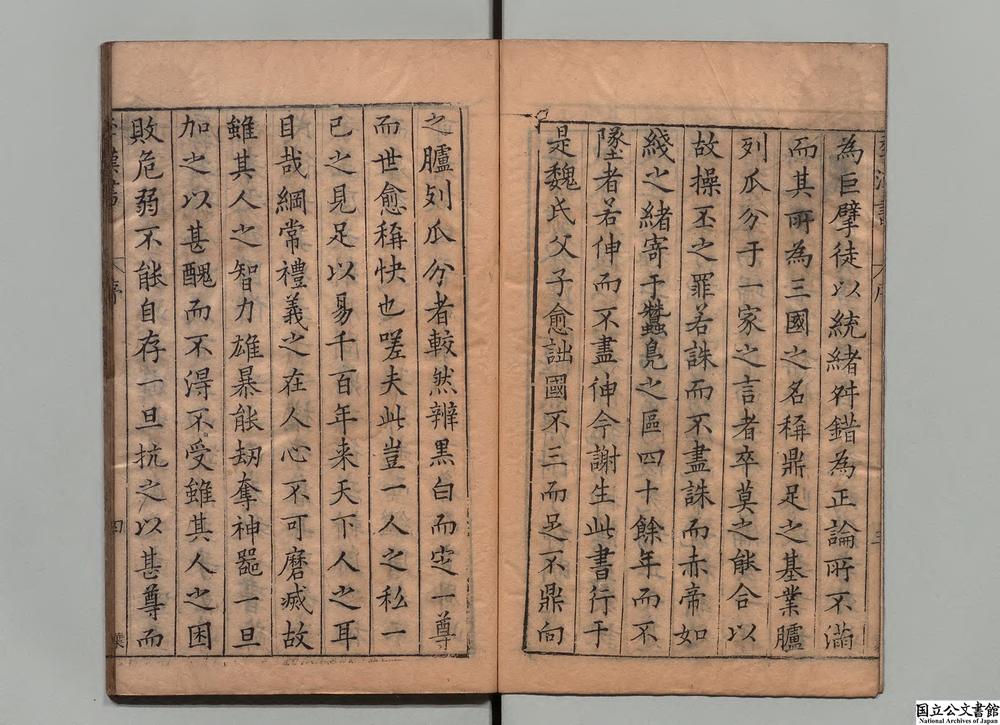 為巨擘徒以統緒舛錯為正論所不滿
而其所為三國之名稱鼎足之基業臚
列瓜分于一家之言者卒莫之能合以
故操丕之罪若誅而不盡誅而赤帝如
綫之緒寄于蠶鳧之區四十餘年而不
墜者若伸而不盡伸今謝生此書行于
是魏氏父子愈詘國不三而足不鼎向
之臚列瓜分者較然辨黑白而定一尊
而世愈稱快也嗟夫此豈一人之私一
己之見足以易千百年来天下人之耳
目哉綱常禮義之在人心不可磨滅故
雖其人之智力雄暴能劫奪神器一旦
加之以甚醜而不得不受雖其人之困
敗危弱不能自存一旦抗之以甚尊而
季漢書 序 四
国立公文書館
National Archives of Japan